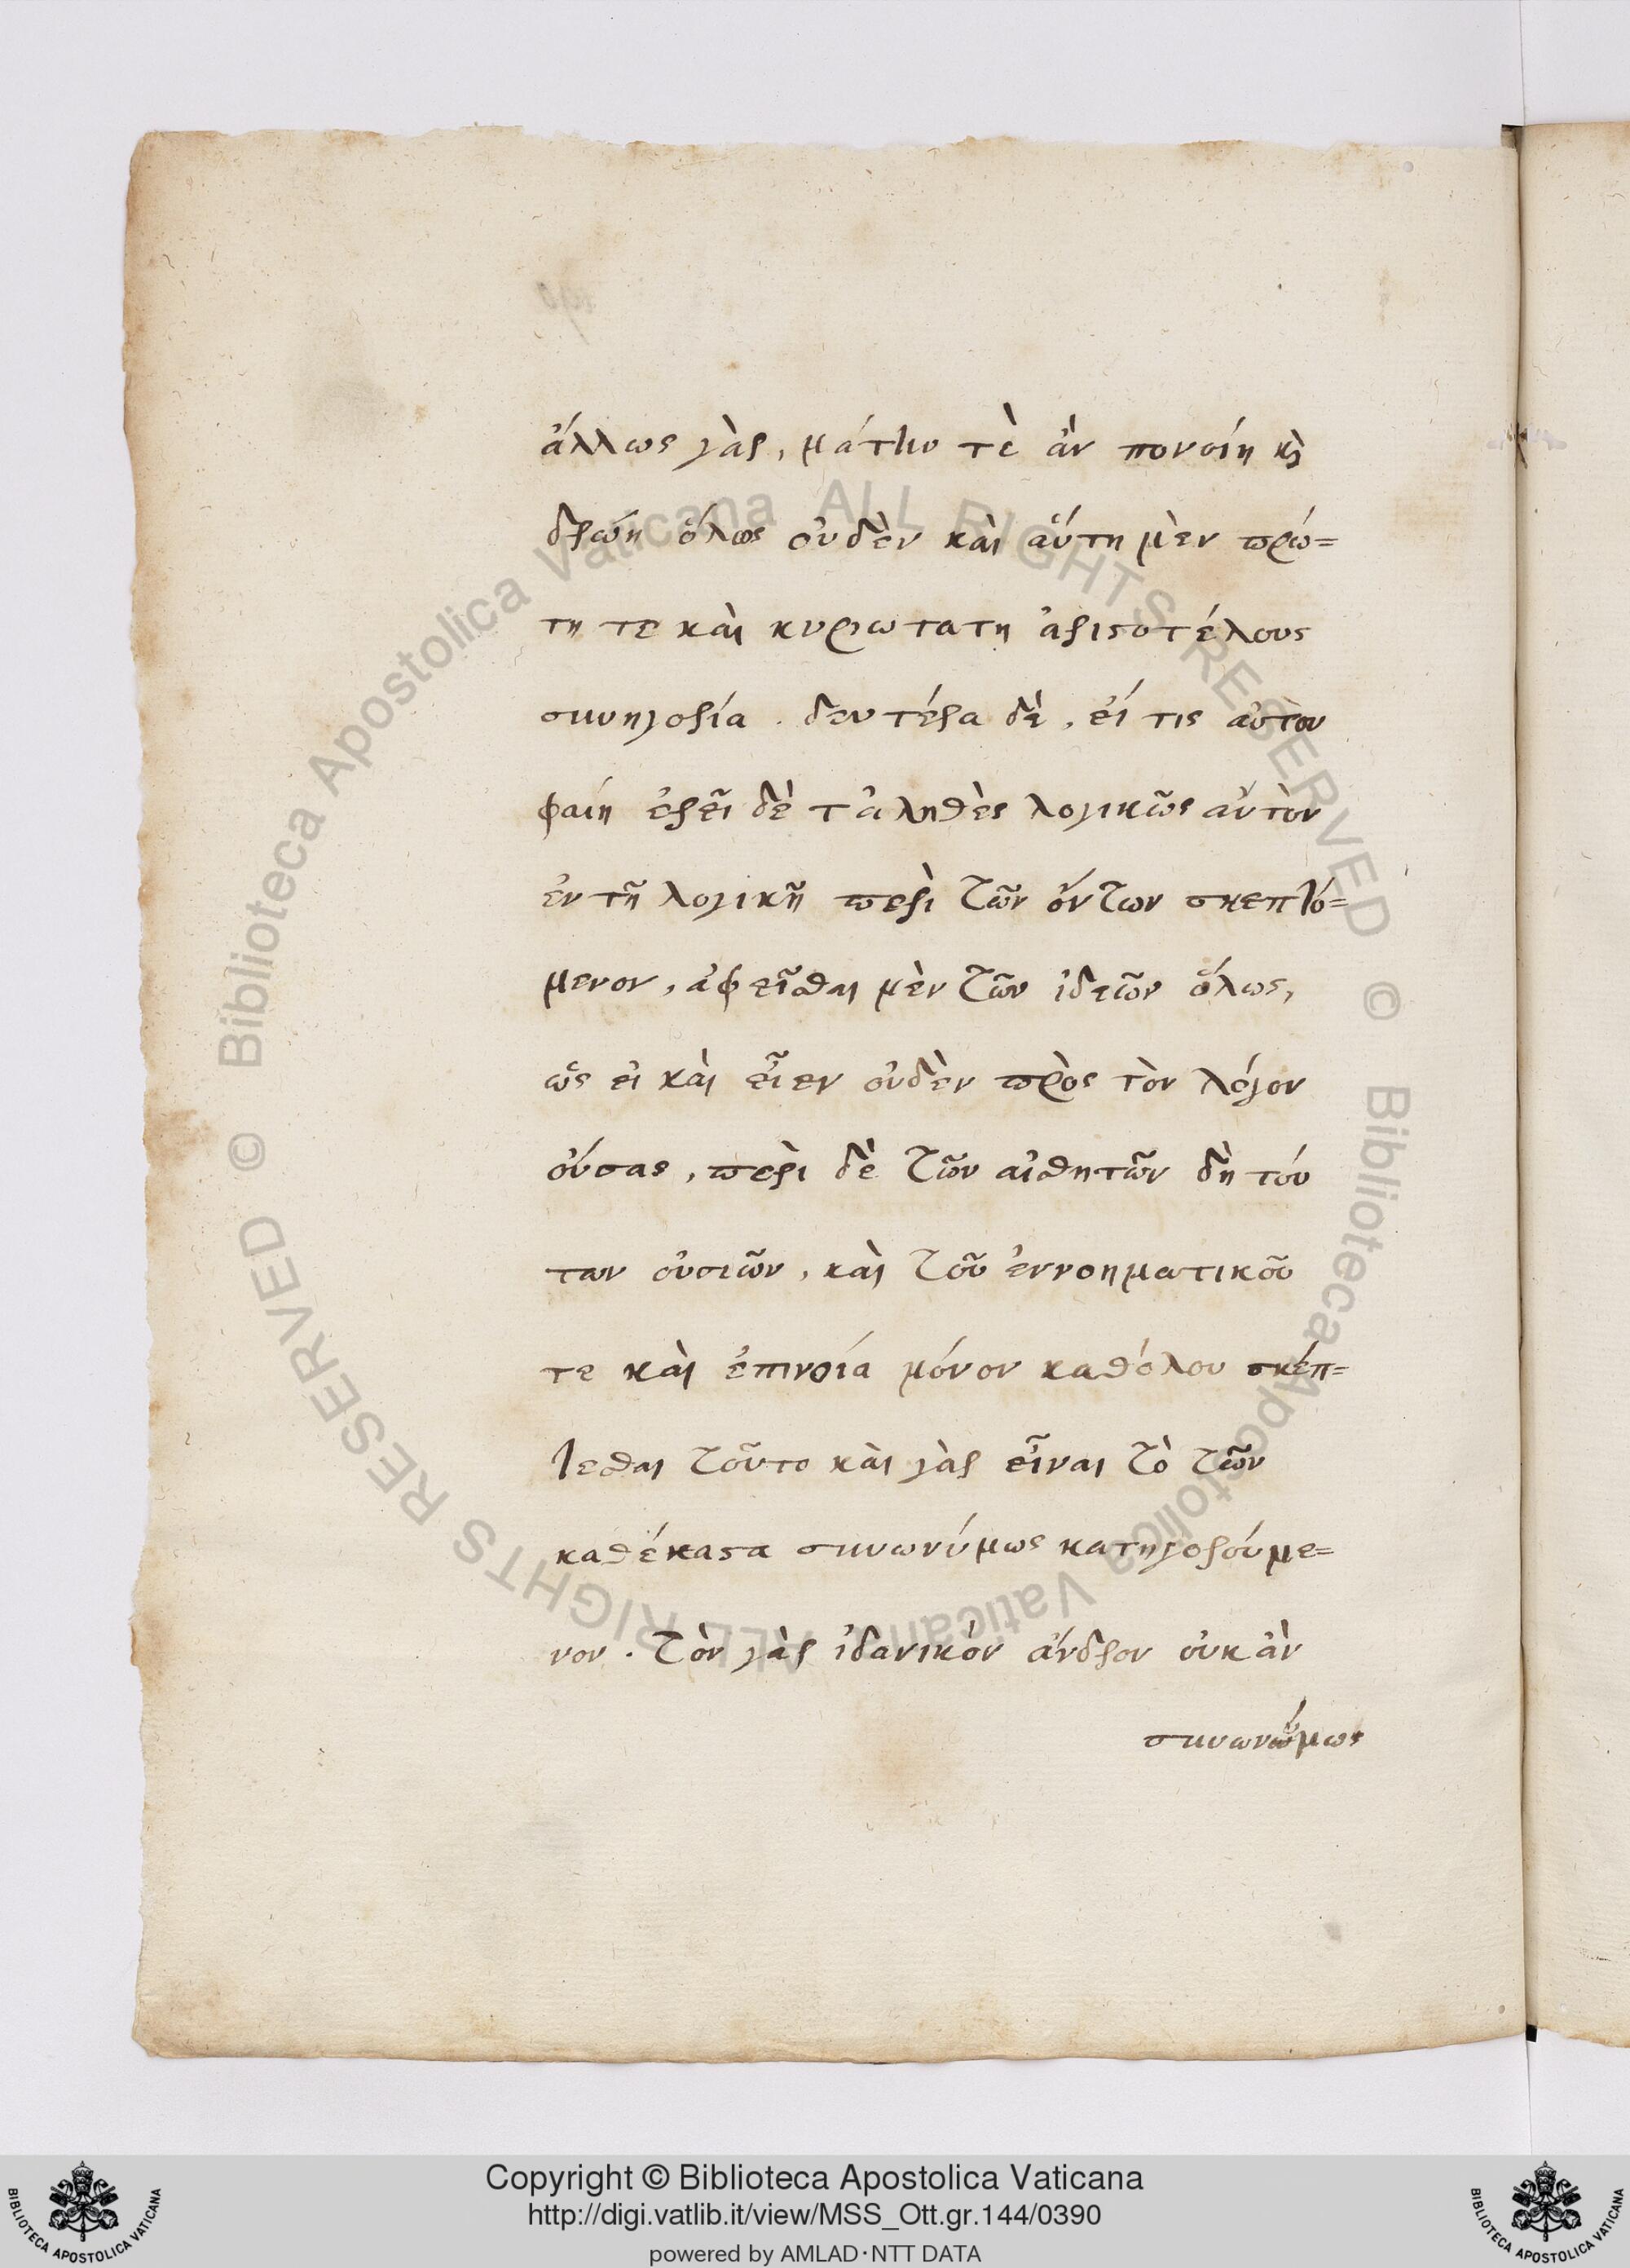 ἄλλως γὰρ, μάτην τὲ ἂν πονοίη κὶ
δρώη ὅλως οὐδὲν καὶ αὕτη μὲν πρώ=
τη τε καὶ κυριωτατη ἀριστοτέλους
συνηγορία . δευτέρα δὲ, εἴ τις αὐτὸν
φαίη ἐρεῖ δὲ τἀληθὲς λογικῶς αὐτὸν
ἐν τῇ λογικῇ περὶ τῶν ὄντων σκεπτό=
μενον, ἀφεῖσθαι μὲν τῶν ἰδεῶν ὅλως,
ὡς εἰ καὶ εἶεν οὐδὲν πρὸς τὸν λόγον
οὔσας, περὶ δὲ τῶν αἰσθητῶν δὴ τού
των οὐσιῶν, καὶ τοῦ ἐννοηματικοῦ
τε καὶ ἐπινοία μόνον καθόλου σκέπ=
τεσθαι τοῦτο καὶ γὰρ εἶναι τὸ τῶν
καθέκαστα συνωνύμως κατηγορούμε=
νον . τὸν γὰρ ἰδανικὸν ἄνδρον οὐκ ἂν
συνωνύμως
Copyright © Biblioteca Apostolica Vaticana
http://digi.vatlib.it/view/MSS_Ott.gr.144/0390
powered by AMLAD·NTT DATA
BIBLIOTECA APOSTOLICA VATICANA
BIBLIOTECA APOSTOLICA VATICANA
© Biblioteca Apostolica Vaticana ALL RIGHTS RESERVED
© Biblioteca Apostolica Vaticana ALL RIGHTS RESERVED